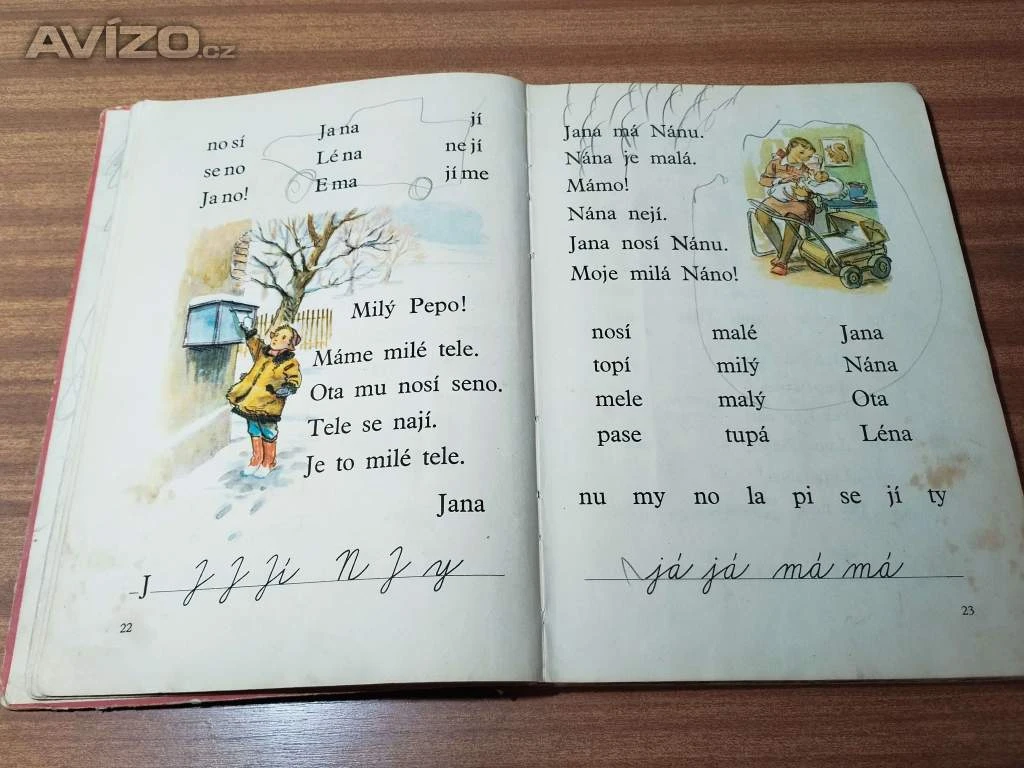 AVÍZO.cz
no sí Ja na jí
se no Lé na ne jí
Ja no! E ma jí me
Milý Pepo!
Máme milé tele.
Ota mu nosí seno.
Tele se nají.
Je to milé tele.
Jana
J J J Jí N J y
22
Jana má Nánu.
Nána je malá.
Mámo!
Nána nejí.
Jana nosí Nánu.
Moje milá Náno!
nosí malé Jana
topí milý Nána
mele malý Ota
pase tupá Léna
nu my no la pi se jí ty
já já má má
23